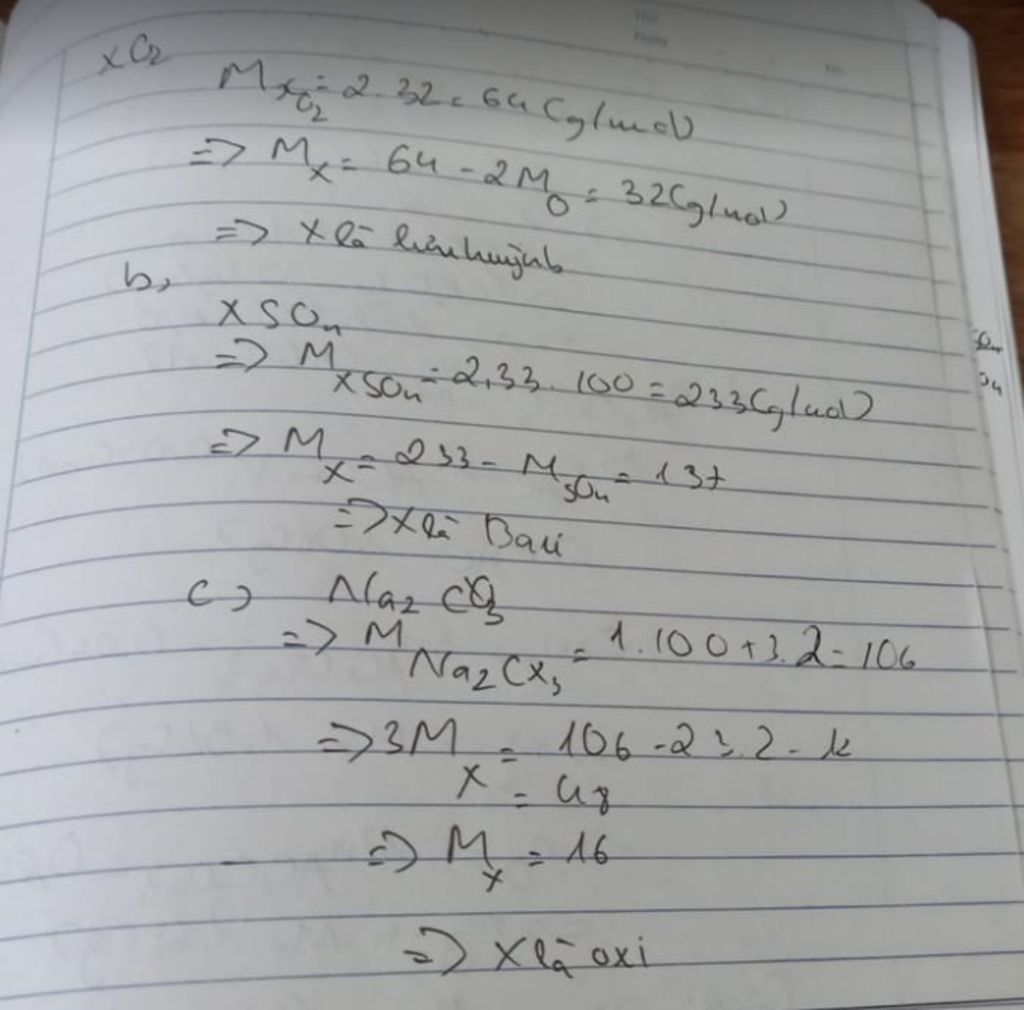 XO₂
M_XO₂ = 2.32 = 64 (g/mol)
=> M_X = 64 - 2M_O = 32 (g/mol)
=> X là lưu huỳnh
b,
XSO₄
=> M_XSO₄ = 2,33.100 = 233 (g/mol)
=> M_X = 233 - M_SO₄ = 137
=> X là Bari
c, Na₂CO₃
=> M_Na₂CX₃ = 1.100 + 3.2 = 106
=> 3M_X = 106 - 23.2 - 12
= 48
=> M_X = 16
=> X là oxi